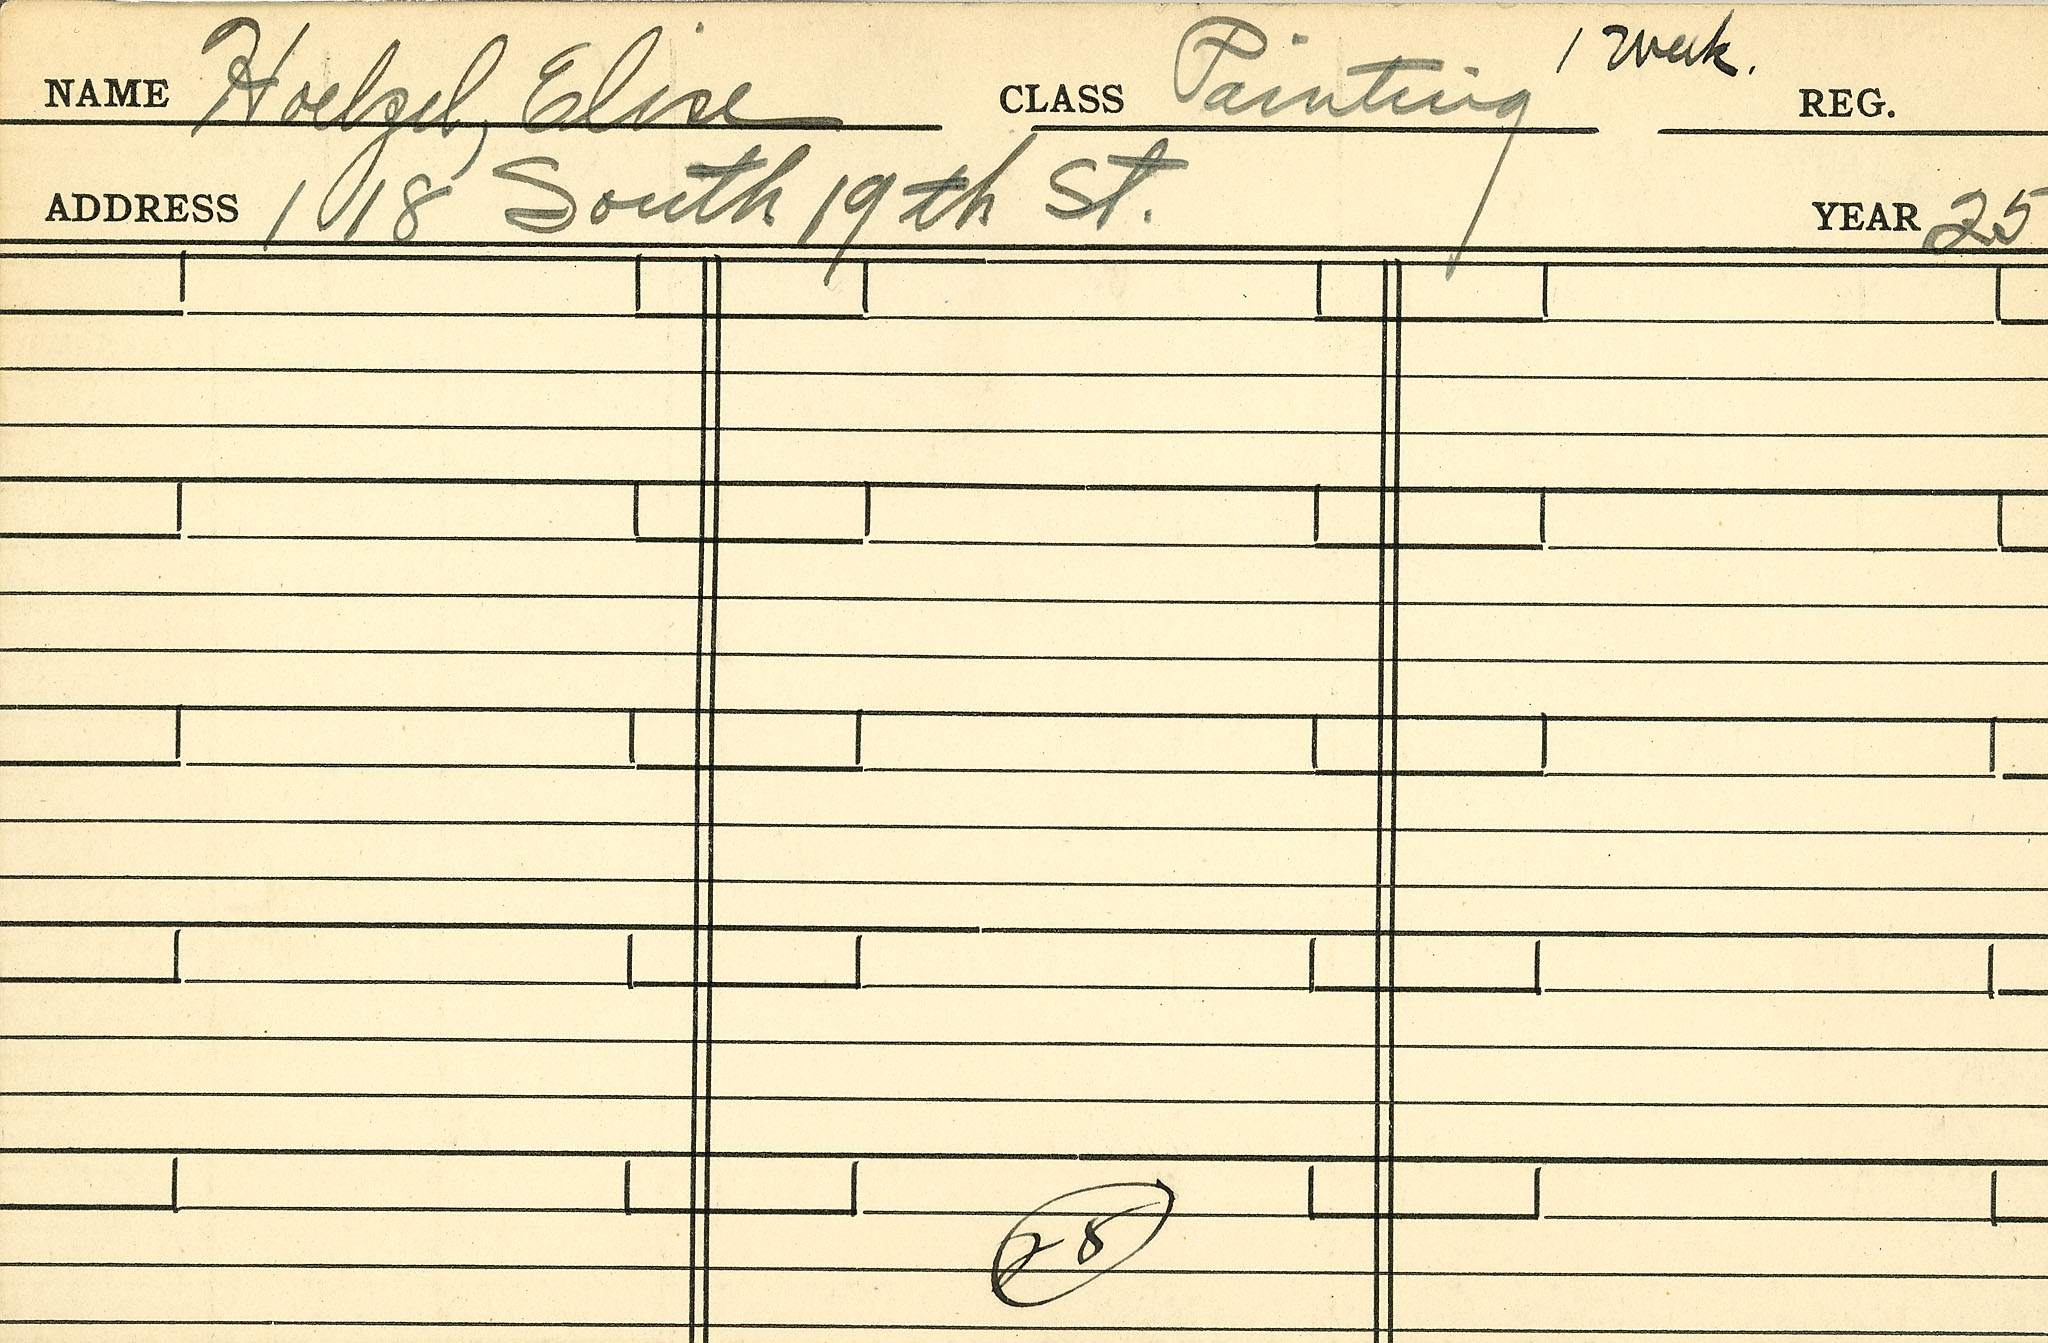 NAME Hoelzel, Elise CLASS Painting 1 week. REG.
ADDRESS 118 South 19th St. YEAR 25
28